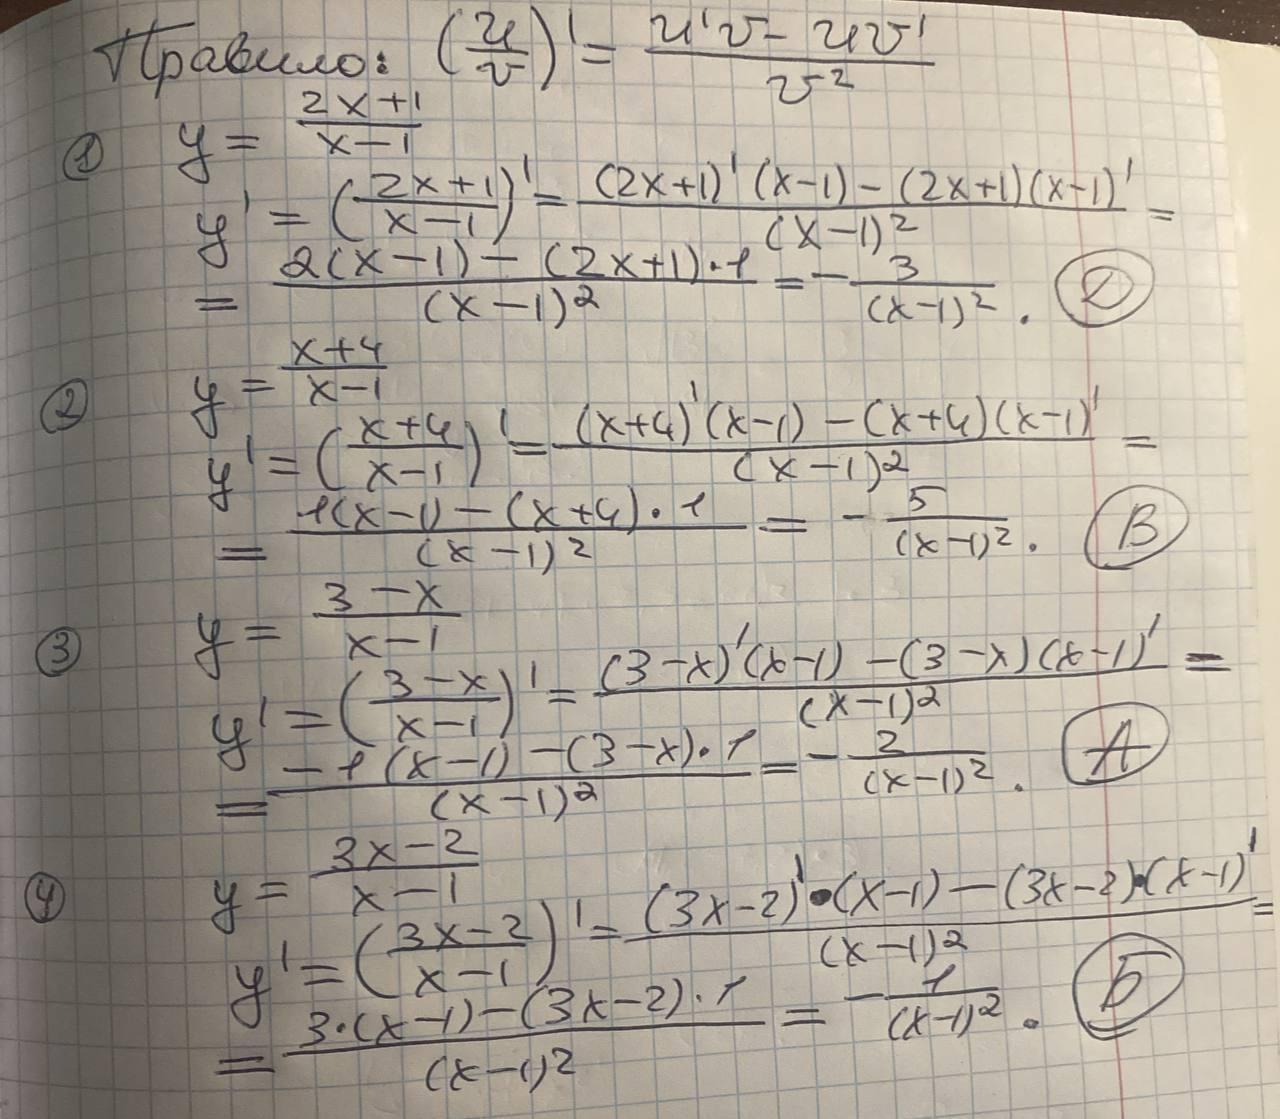 Правило: (u/v)' = (u'v - uv')/v²
① y = (2x+1)/(x-1)
y' = ((2x+1)/(x-1))' = ((2x+1)'(x-1) - (2x+1)(x-1)')/(x-1)² =
= (2(x-1) - (2x+1)·1)/(x-1)² = - 3/(x-1)². Д
② y = (x+4)/(x-1)
y' = ((x+4)/(x-1))' = ((x+4)'(x-1) - (x+4)(x-1)')/(x-1)² =
= (1(x-1) - (x+4)·1)/(x-1)² = - 5/(x-1)². В
③ y = (3-x)/(x-1)
y' = ((3-x)/(x-1))' = ((3-x)'(x-1) - (3-x)(x-1)')/(x-1)² =
= (-1(x-1) - (3-x)·1)/(x-1)² = - 2/(x-1)². А
④ y = (3x-2)/(x-1)
y' = ((3x-2)/(x-1))' = ((3x-2)'·(x-1) - (3x-2)·(x-1)')/(x-1)² =
= (3·(x-1) - (3x-2)·1)/(x-1)² = - 1/(x-1)². Б